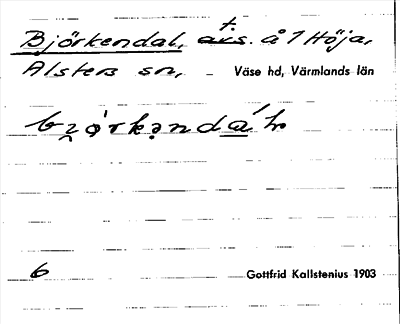 Björkendal, t. avs. å 1 Höja,
Alsters sn, Väse hd, Värmlands län
6 Gottfrid Kallstenius 1903